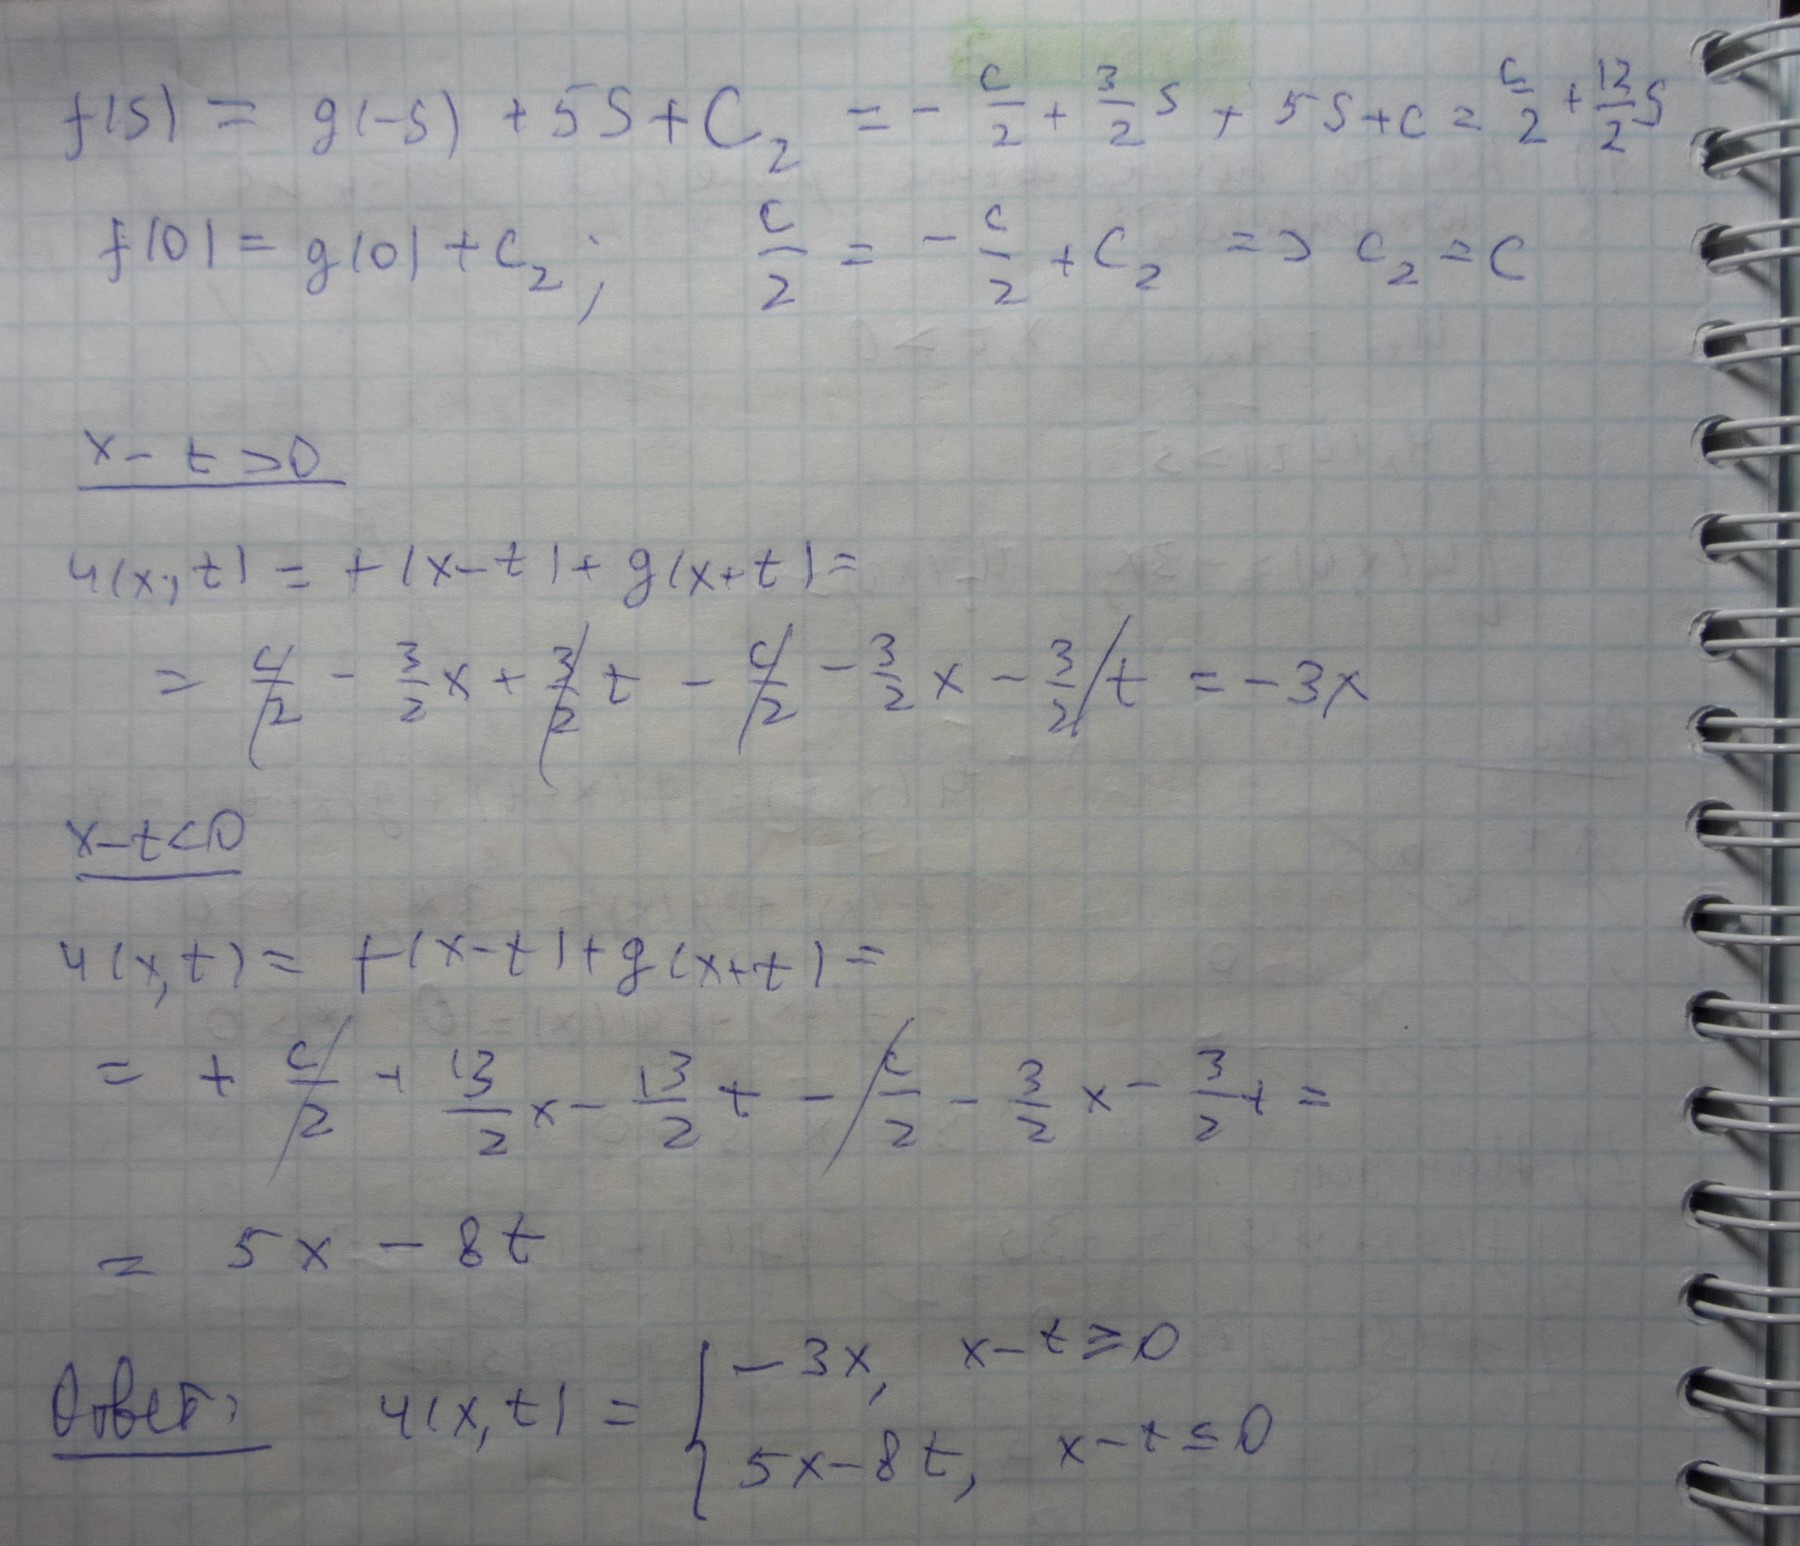 f(s) = g(-s) + 5s + C₂ = - c/2 + 3/2 s + 5s + c = c/2 + 13/2 s
f(0) = g(0) + c₂ ; c/2 = - c/2 + c₂ => c₂ = c
x - t > 0
u(x, t) = f(x - t) + g(x + t) =
= c/2 - 3/2 x + 3/2 t - c/2 - 3/2 x - 3/2 t = -3x
x - t < 0
u(x, t) = f(x - t) + g(x + t) =
= + c/2 + 13/2 x - 13/2 t - c/2 - 3/2 x - 3/2 t =
= 5x - 8t
Ответ: u(x, t) = { -3x, x - t ≥ 0
5x - 8t, x - t ≤ 0